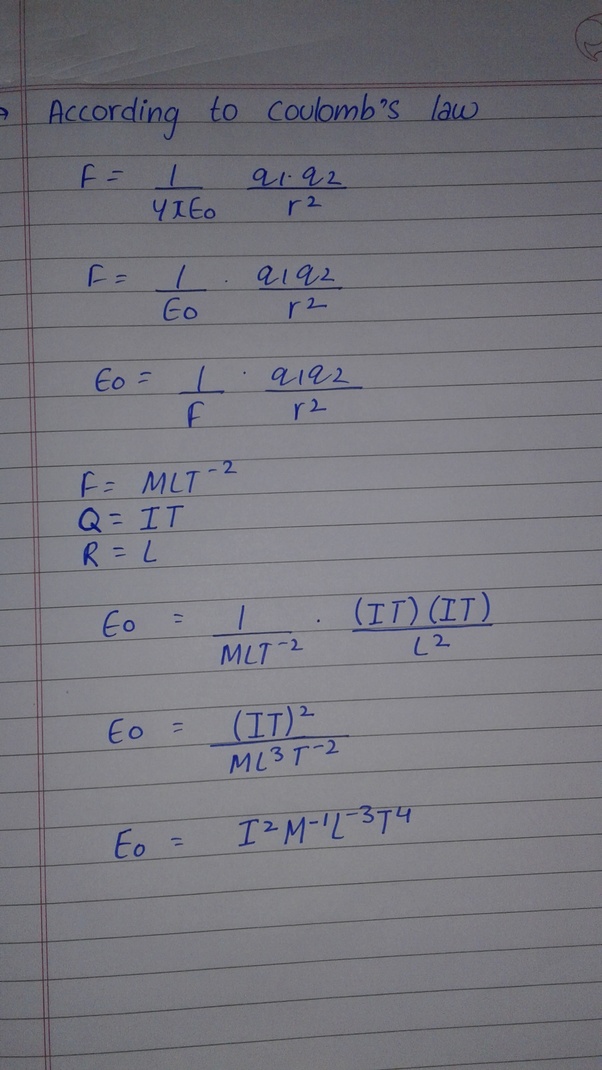 → According to Coulomb's law
F = 1/4πε0 q1.q2/r2
F = 1/ε0 . q1q2/r2
ε0 = 1/F . q1q2/r2
F = MLT-2
Q = IT
R = L
ε0 = 1/MLT-2 . (IT)(IT)/L2
ε0 = (IT)2/ML3T-2
ε0 = I2M-1L-3T4